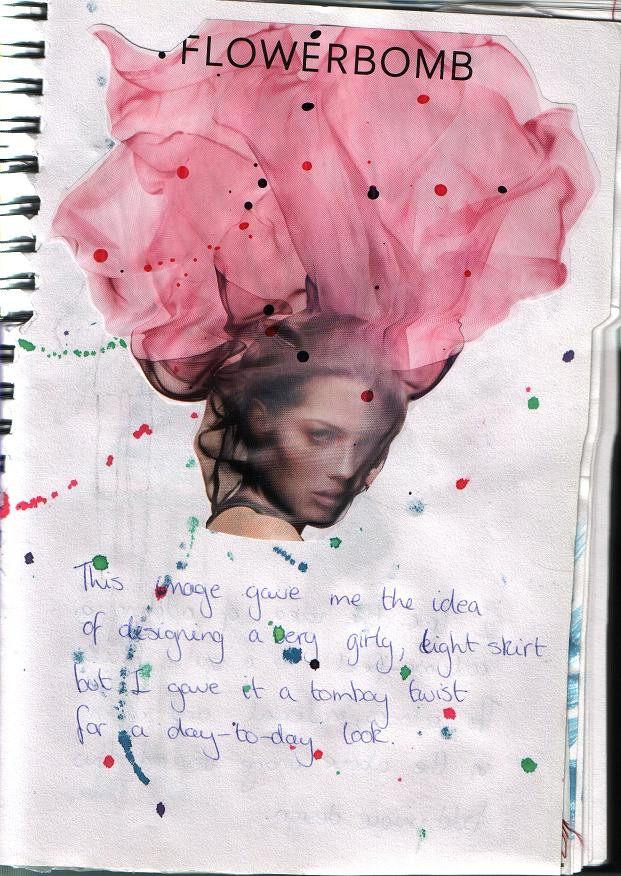 FLOWERBOMB
This image gave me the idea
of designing a very girly, light skirt
but I gave it a tomboy twist
for a day-to-day look.